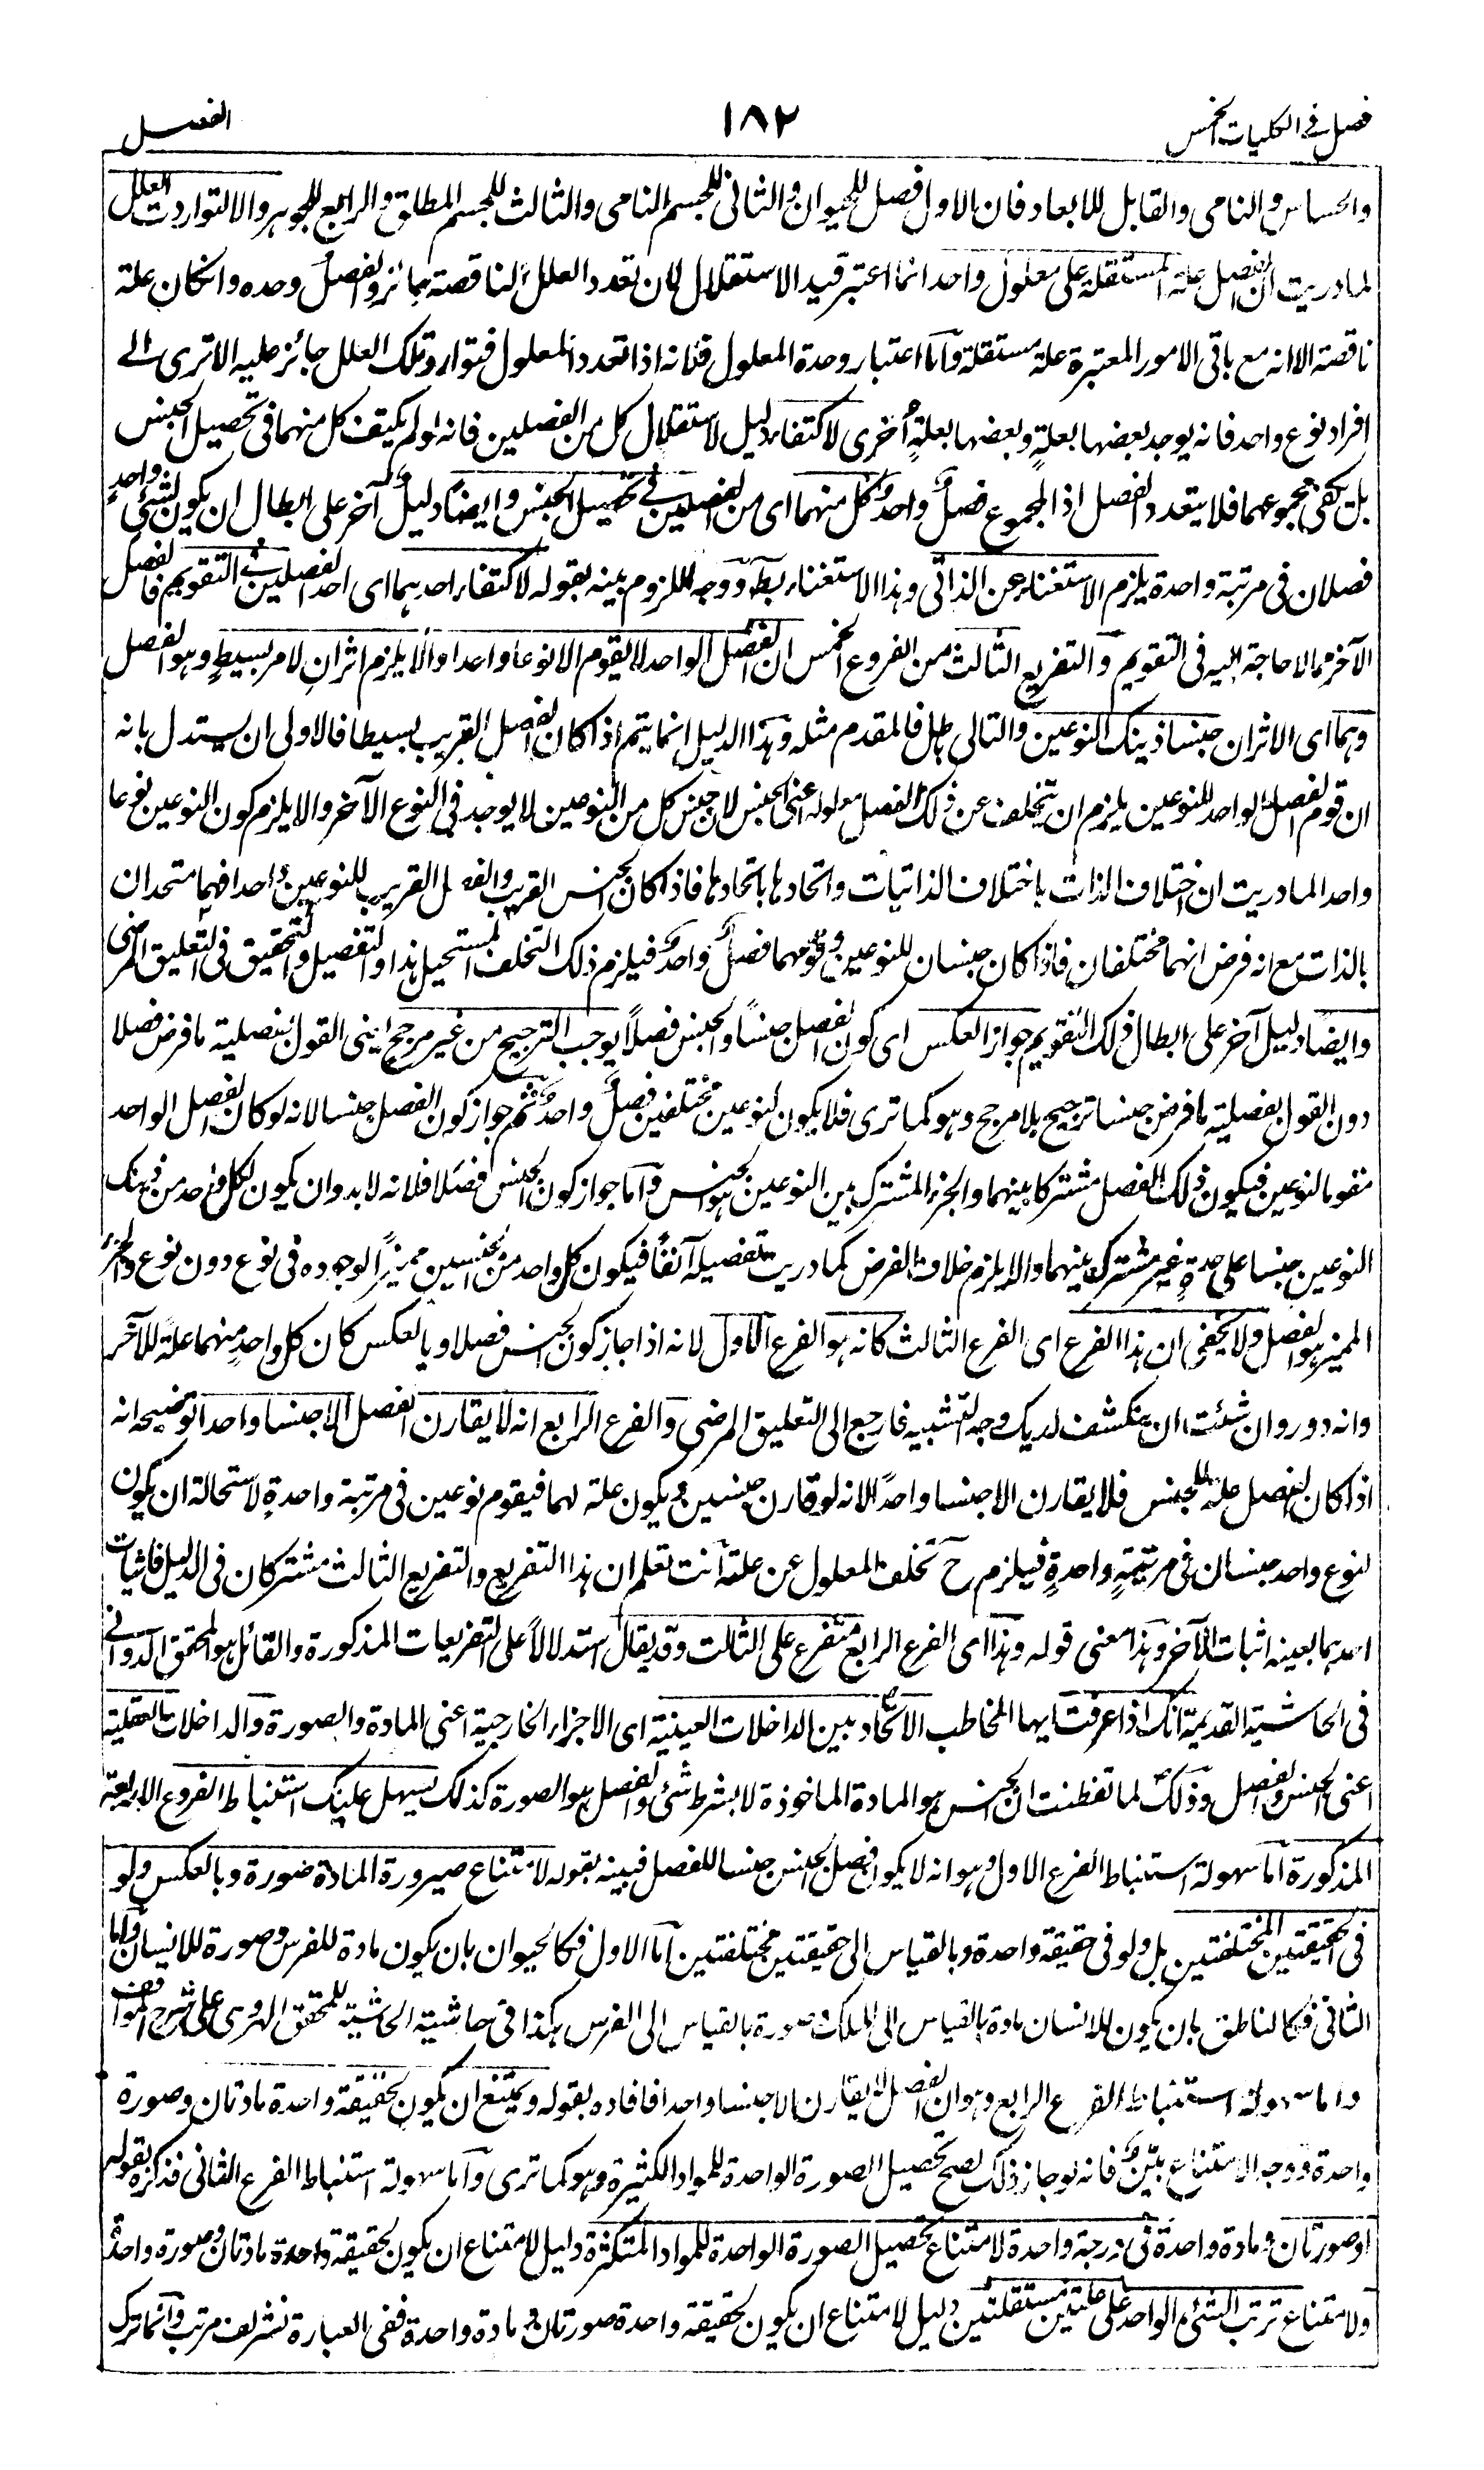 فصل فى الكليات الخمس ١٨٢ الفصل
والحساس والنامى والقابل للابعاد فان الاول فصل للحيوان والثانى للجسم النامى والثالث للجسم المطلق والرابع للجوهر والا لتواردت العلل
لما دريت ان الفصل علة المستقلة على معلول واحد انما اعتبر قيد الاستقلال لان تعدد العلل الناقصة جائز والفصل وحده وان كان علة
ناقصة الا انه مع باقى الامور المعتبرة علة مستقلة واما اعتبار وحدة المعلول فلانه اذا تعدد المعلول فتوارد تلك العلل جائز عليه الا ترى الى
افراد نوع واحد فانه يوجد بعضها بعلةٍ وبعضها بعلةٍ أخرى لاكتفاء دليل لاستقلال كل من الفصلين فانه لو لم يكتف كل منهما فى تحصيل الجنس
بل يكفى مجموعهما فلا يتعدد الفصل اذ المجموع فصلٌ واحدٌ كل منهما اى من الفصلين فى تحصيل الجنس وايضاً دليلٌ آخر على ابطال ان يكون لشئ واحدٍ
فصلان فى مرتبة واحدة يلزم الاستغناء عن الذاتى وهذا الاستغناء بط ووجه اللزوم بينه بقوله لاكتفاء احدهما اى احد الفصلين فى التقويم فالفصل
الآخر مما لا حاجة اليه فى التقويم والتفريع الثالث من الفروع الخمس ان الفصل الواحد لا يقوم الا نوعا واحدا والا يلزم اثرانِ لامر بسيطٍ وهو الفصل
وهما اى الاثران جنسا ذينك النوعين والتالى باطل فالمقدم مثله وهذا الدليل انما يتم اذا كان الفصل القريب بسيطا فالاولى ان يستدل بانه
ان قوم الفصل الواحد للنوعين يلزم ان يتخلف عن ذلك الفصل معلوله اعنى الجنس لان جنس كل من النوعين لا يوجد فى النوع الآخر والا يلزم كون النوعين نوعا
واحدا لما دريت ان اختلاف الذات باختلاف الذاتيات واتحادها باتحادها فاذا كان الجنس القريب والفصل القريب للنوعين واحدا فهما متحدان
بالذات مع انه فرض انهما مختلفان فاذا كان جنسان للنوعين وقومهما فصلٌ واحدٌ فيلزم ذلك التخلف المستحيل هذا والتفصيل والتحقيق فى التعليق المرضى
وايضا دليل آخر على ابطال ذلك التقويم جواز العكس اى كون الفصل جنساً والجنس فصلاً يوجب الترجيح من غير مرجح يعنى القول بفصلية ما فرض فصلا
دون القول بفصلية ما فرض جنسا ترجيح بلا مرجح وهو كما ترى فلا يكون لنوعين مختلفين فصلٌ واحدٌ ثم جواز كون الفصل جنسا لانه لو كان الفصل الواحد
مقوما لنوعين فيكون ذلك الفصل مشتركا بينهما والجزء المشترك بين النوعين هو الجنس واما جواز كون الجنس فصلا فلانه لا بد وان يكون لكل واحد من ذينك
النوعين جنسا على حدةٍ غير مشترك بينهما والا يلزم خلاف الفرض كما دريت تفصيله آنفاً فيكون كل واحد من الجنسين مميزاً لوجوده فى نوع دون نوع والجزء
المميز هو الفصل ولا يخفى ان هذا الفرع اى الفرع الثالث كانه هو الفرع الاول لانه اذا جاز كون الجنس فصلا وبالعكس كان كل واحدٍ منهما علة للآخر
وانه دور وان شئت ان ينكشف لديك وجه التشبيه فارجع الى التعليق المرضى والفرع الرابع انه لا يقارن الفصل الا جنسا واحدا توضيحه انه
اذا كان الفصل علة للجنس فلا يقارن الا جنسا واحداً لانه لو قارن جنسين و يكون علة لهما فيقوم نوعين فى مرتبة واحدة لاستحالة ان يكون
لنوع واحد جنسان فى مرتبةٍ واحدةٍ فيلزم ح تخلف المعلول عن علته أنت تعلم ان هذا التفريع والتفريع الثالث مشتركان فى الدليل فاثبات
احدهما بعينه اثبات الآخر وهذا معنى قوله وهذا اى الفرع الرابع متفرع على الثالث وقد يقال استدلالاً على التفريعات المذكورة والقائل هو المحقق الدوانى
فى الحاشية القديمة انك اذا عرفت ايها المخاطب الاتحاد بين الداخلات العينية اى الاجزاء الخارجية اعنى المادة والصورة والداخلات العقلية
اعنى الجنس والفصل وذلك لما تفطنت ان الجنس هو المادة الماخوذة لا بشرط شئ والفصل هو الصورة كذلك يسهل عليك استنباط الفروع الاربعة
المذكورة اما سهولة استنباط الفرع الاول وهو انه لا يكون فصل الجنس جنسا للفصل فبينه بقوله لامتناع صيرورة المادة صورة وبالعكس ولو
فى الحقيقتين المختلفتين بل ولو فى حقيقة واحدة وبالقياس الى حقيقتين مختلفتين اما الاول فكالحيوان بان يكون مادة للفرس وصورة للانسان واما
الثانى فكالناطق بان يكون للانسان مادة بالقياس الى الملك وصورة بالقياس الى الفرس هكذا فى حاشية الحاشية للمحقق الهروى على شرح المواقف
واما سهولة استنباط الفرع الرابع وهو ان الفصل لا يقارن الا جنسا واحدا فافاده بقوله ويمتنع ان يكون لحقيقة واحدة مادتان وصورة
واحدة ووجه الامتناع بيّن فانه لو جاز ذلك لصح تحصيل الصورة الواحدة للمواد الكثيرة وهو كما ترى واما سهولة استنباط الفرع الثانى فذكره بقوله
او صورتان و مادة واحدة فى درجة واحدة لامتناع تحصيل الصورة الواحدة للمواد المتكثرة دليل لامتناع ان يكون لحقيقة واحدة مادتان وصورة واحدة
ولامتناع ترتب الشئ الواحد على علتين مستقلتين دليل لامتناع ان يكون لحقيقة واحدة صورتان و مادة واحدة ففى العبارة نشر لف مرتب وانما ترك